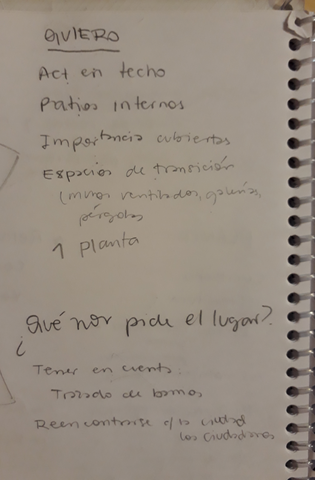 QUIERO
Act en techo
Patios internos
Importancia cubiertas
Espacios de transición
(muros ventilados, galerías,
pérgolas
1 planta
¿Qué nos pide el lugar?
Tener en cuenta
Trazado de
Reencontrarse c/ la ciudad
los ciudadanos